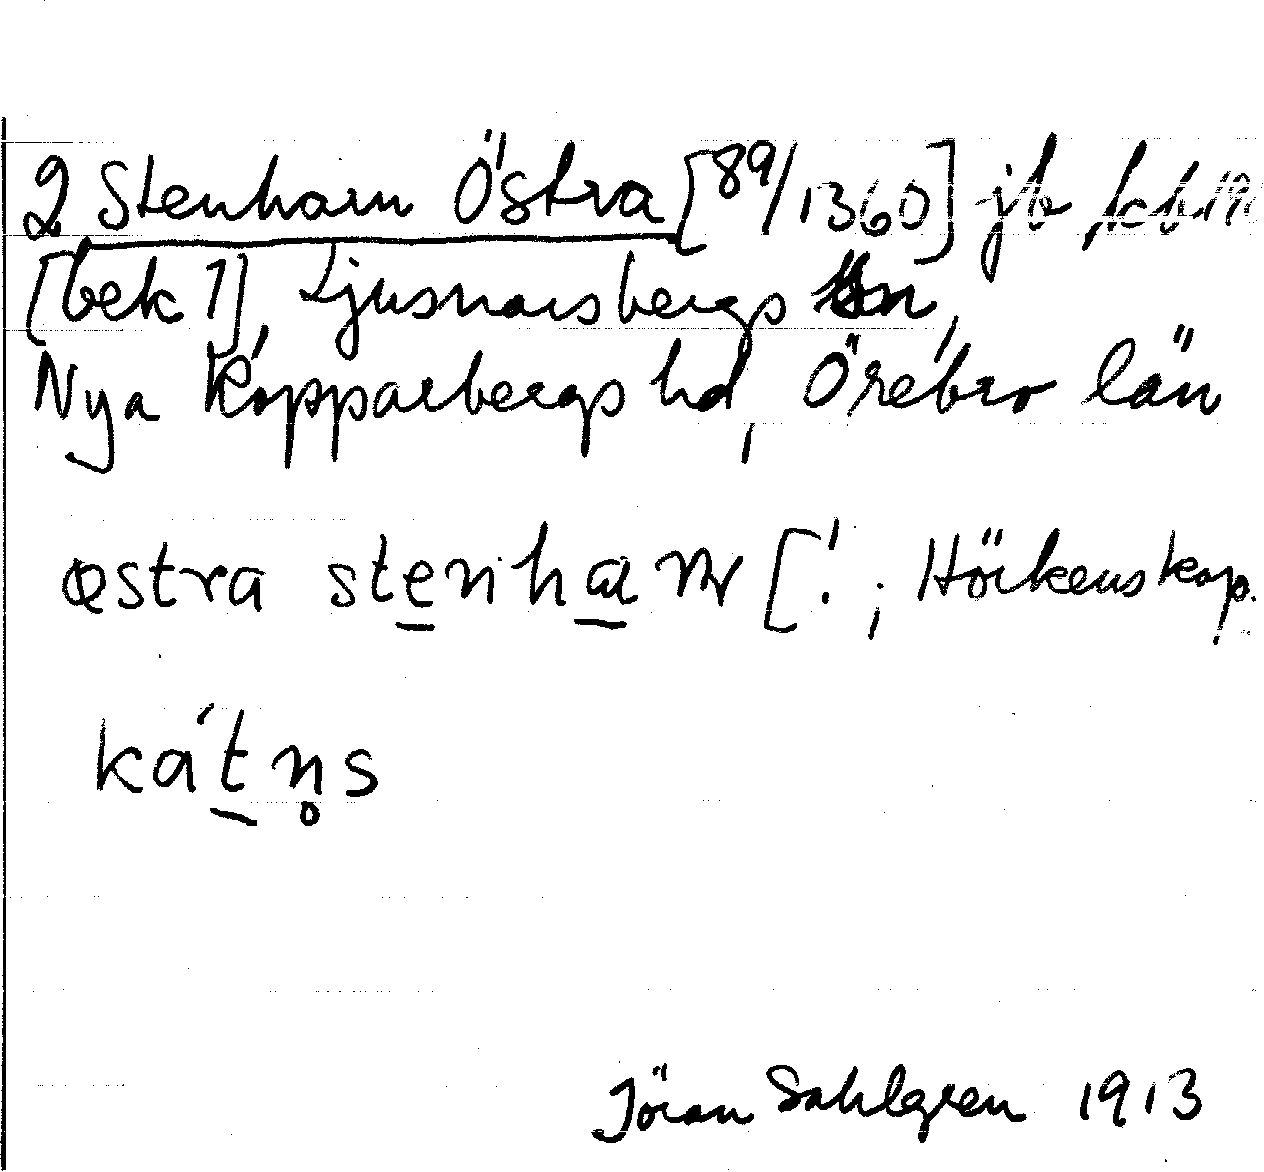 2 Stenharn Östra [89/1360] jb, kb 191
[bek 1], Ljusnarsbergs sn,
Nya Kopparbergs hd, Örebro län
œstra stenhaṉ [!; Hörkenskap.
kátn̥s
Jöran Sahlgren 1913